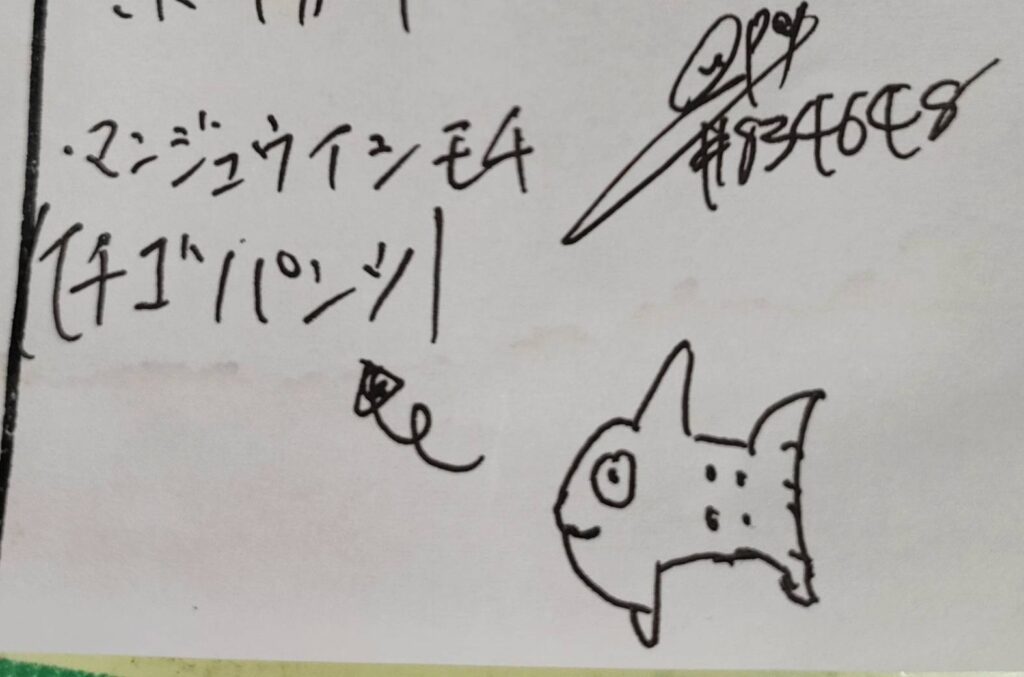 ・マンジュウイシモチ
(イチゴパンツ)
#834648